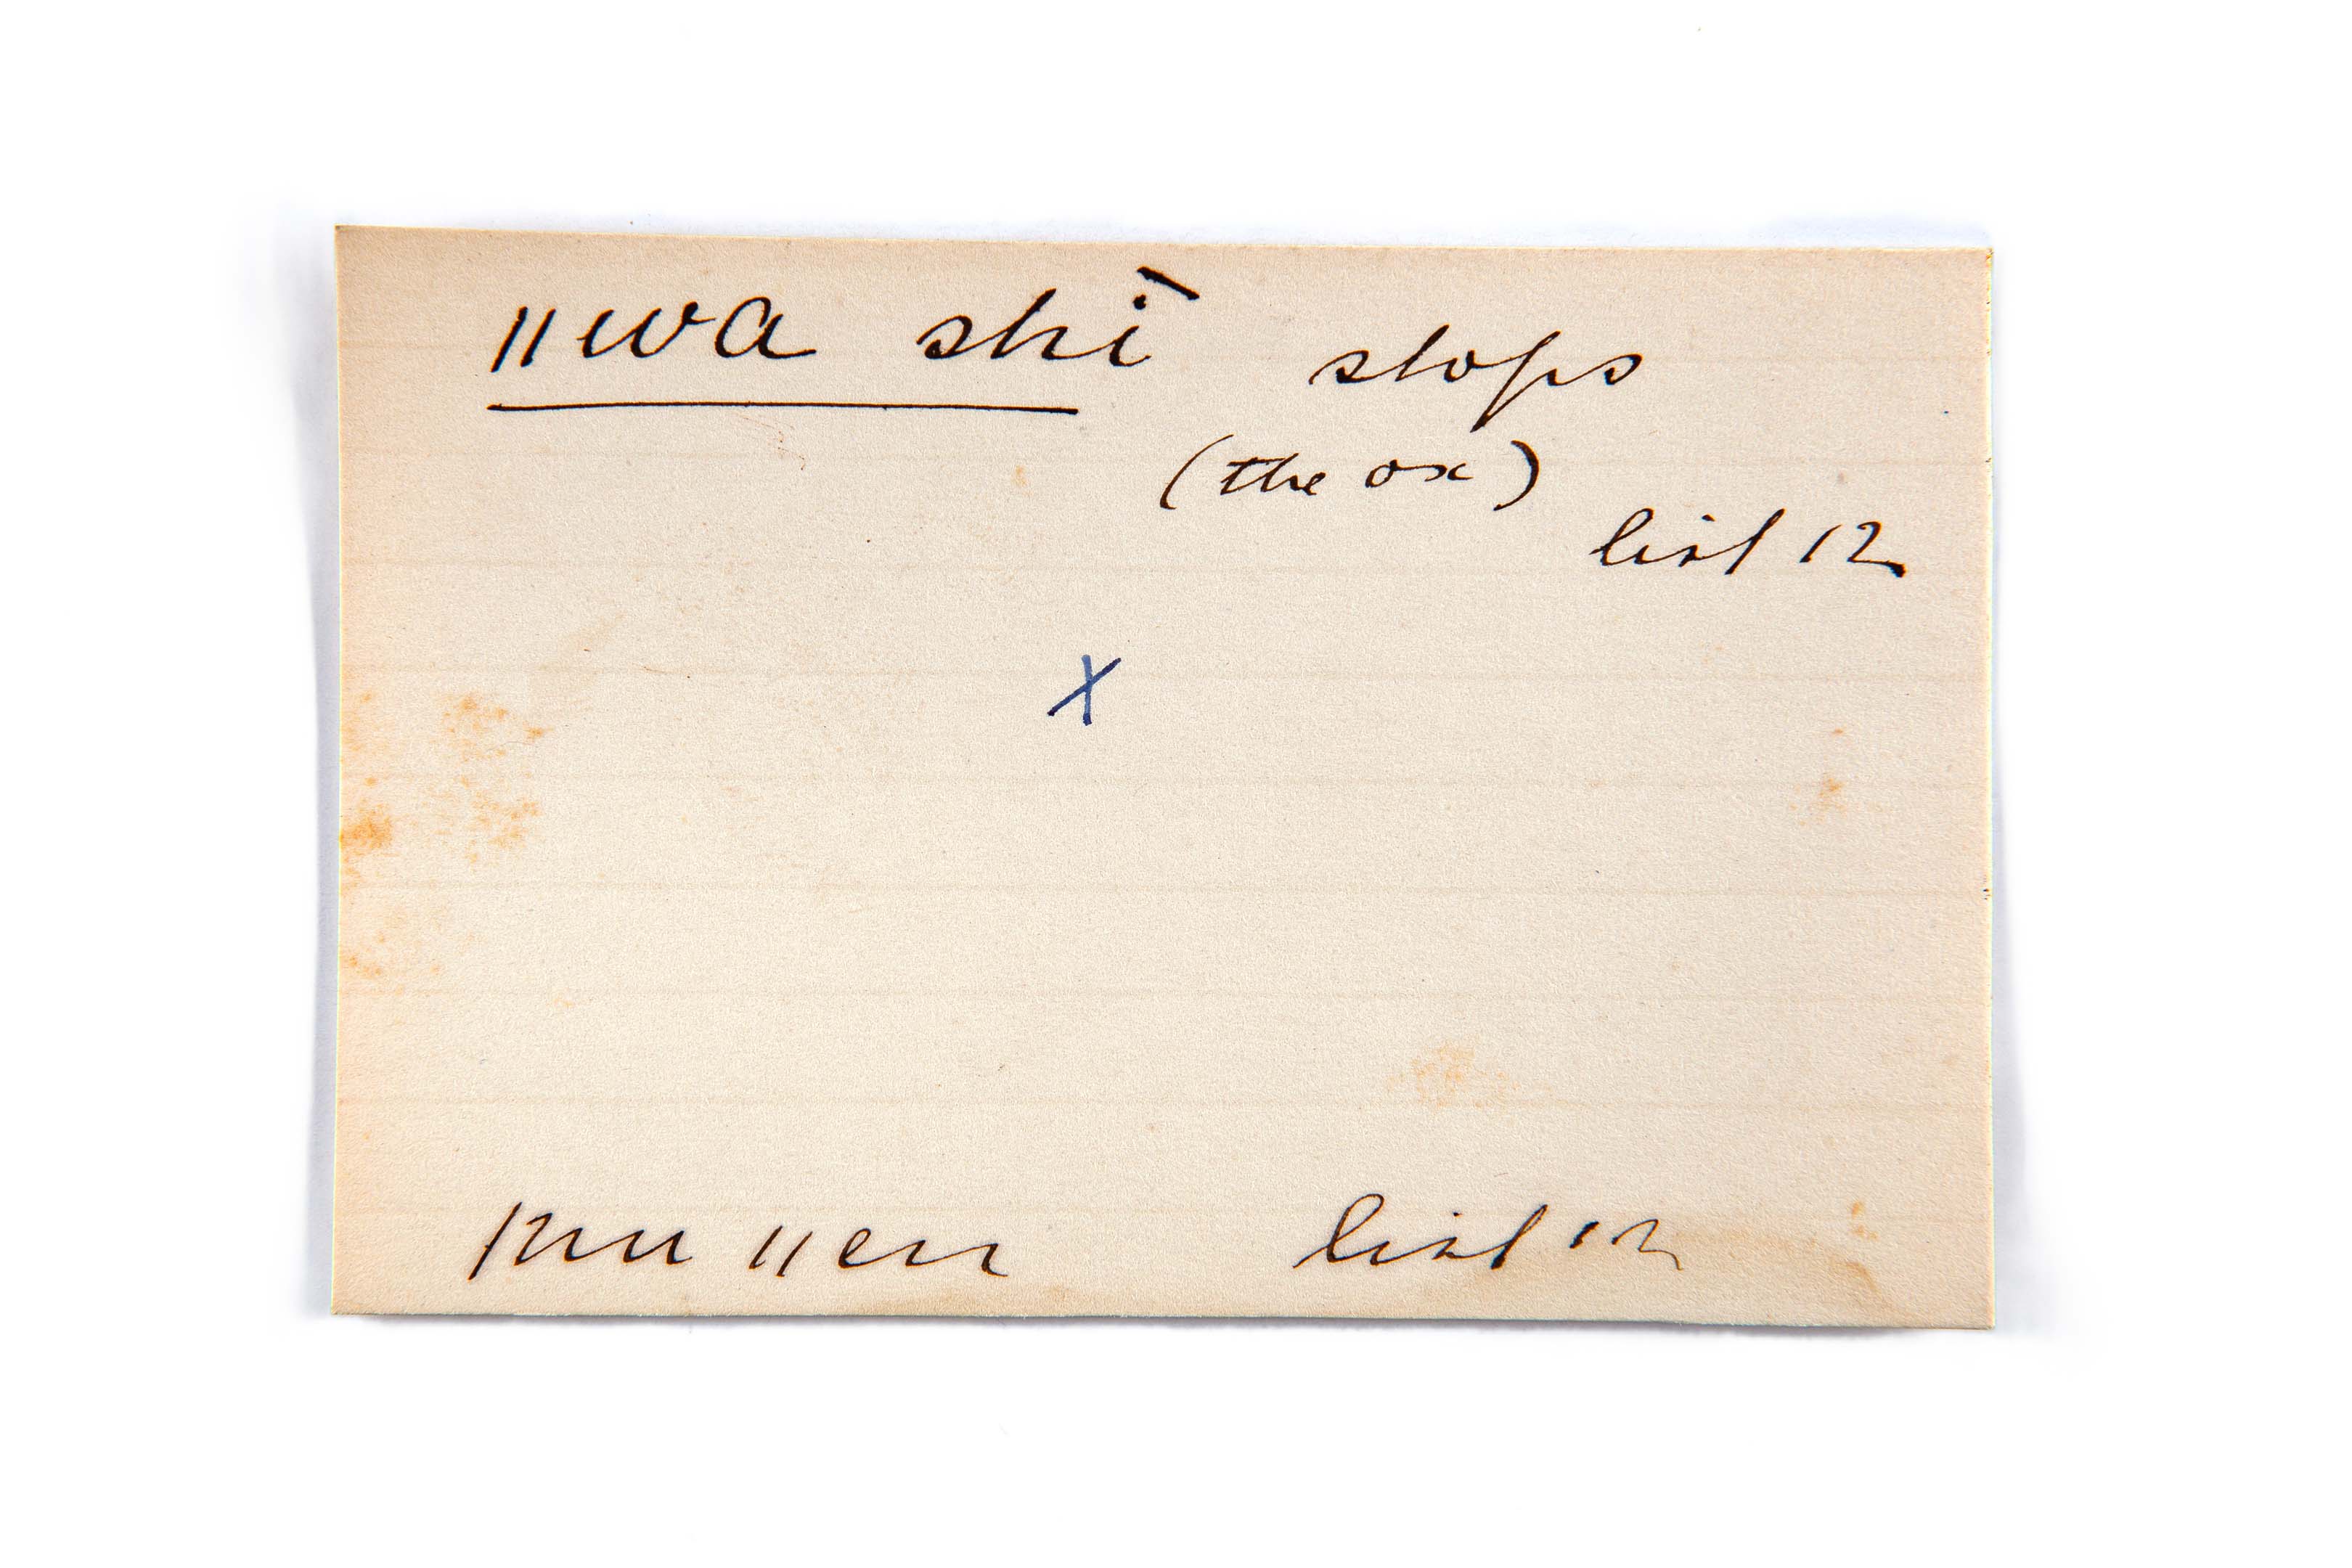 ǁwa shī stops
(the ox)
list 12
X
ǀnu ǁen list 12